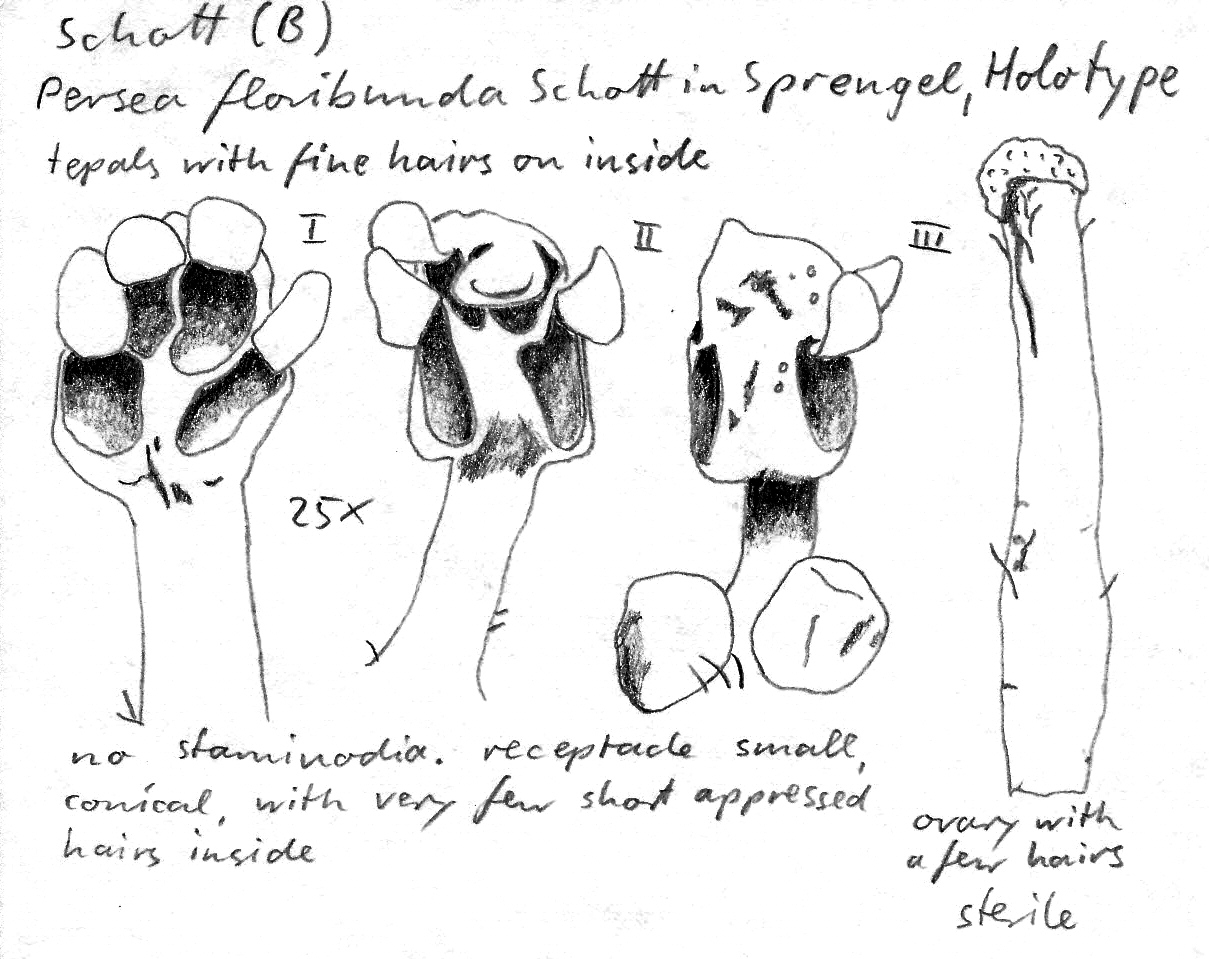 Schott (B)
Persea floribunda Schott in Sprengel, Holotype
tepals with fine hairs on inside
I
II
III
25x
no staminodia. receptacle small,
conical, with very few short appressed
hairs inside
ovary with
a few hairs
sterile